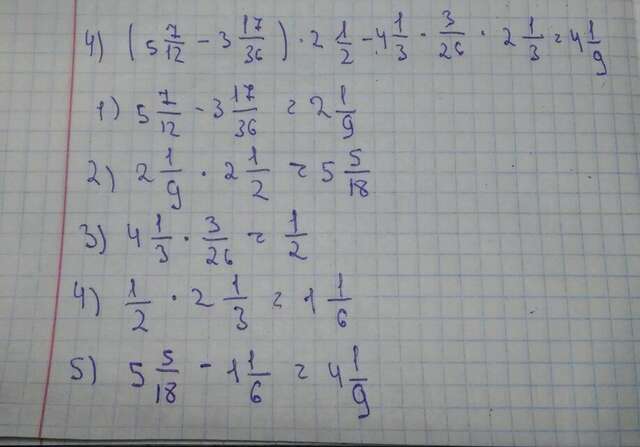 4) (5 7/12 - 3 17/36) · 2 1/2 - 4 1/3 · 3/26 · 2 1/3 = 4 1/9
1) 5 7/12 - 3 17/36 = 2 1/9
2) 2 1/9 · 2 1/2 = 5 5/18
3) 4 1/3 · 3/26 = 1/2
4) 1/2 · 2 1/3 = 1 1/6
5) 5 5/18 - 1 1/6 = 4 1/9